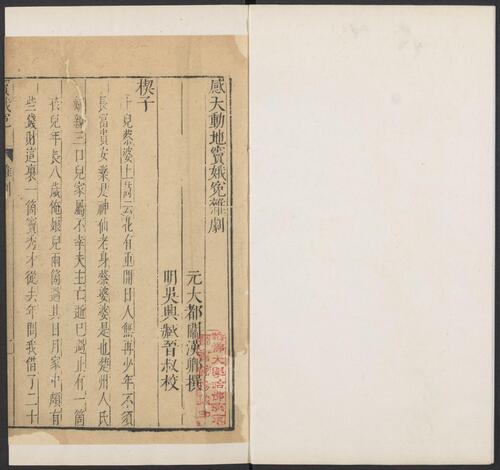 感天動地竇娥冤雜劇
元大都關漢卿撰
明吳興臧晉叔校
楔子
卜兒蔡婆上詩云花有重開日人無再少年不須
長富貴安樂是神仙老身蔡婆婆是也楚州人氏
嫡親三口兒家屬不幸夫主亡逝已過止有一箇
孩兒年長八歲俺娘兒兩箇過其日月家中頗有
些錢財這裏一箇竇秀才從去年問我借了二十
竇娥冤
雜劇